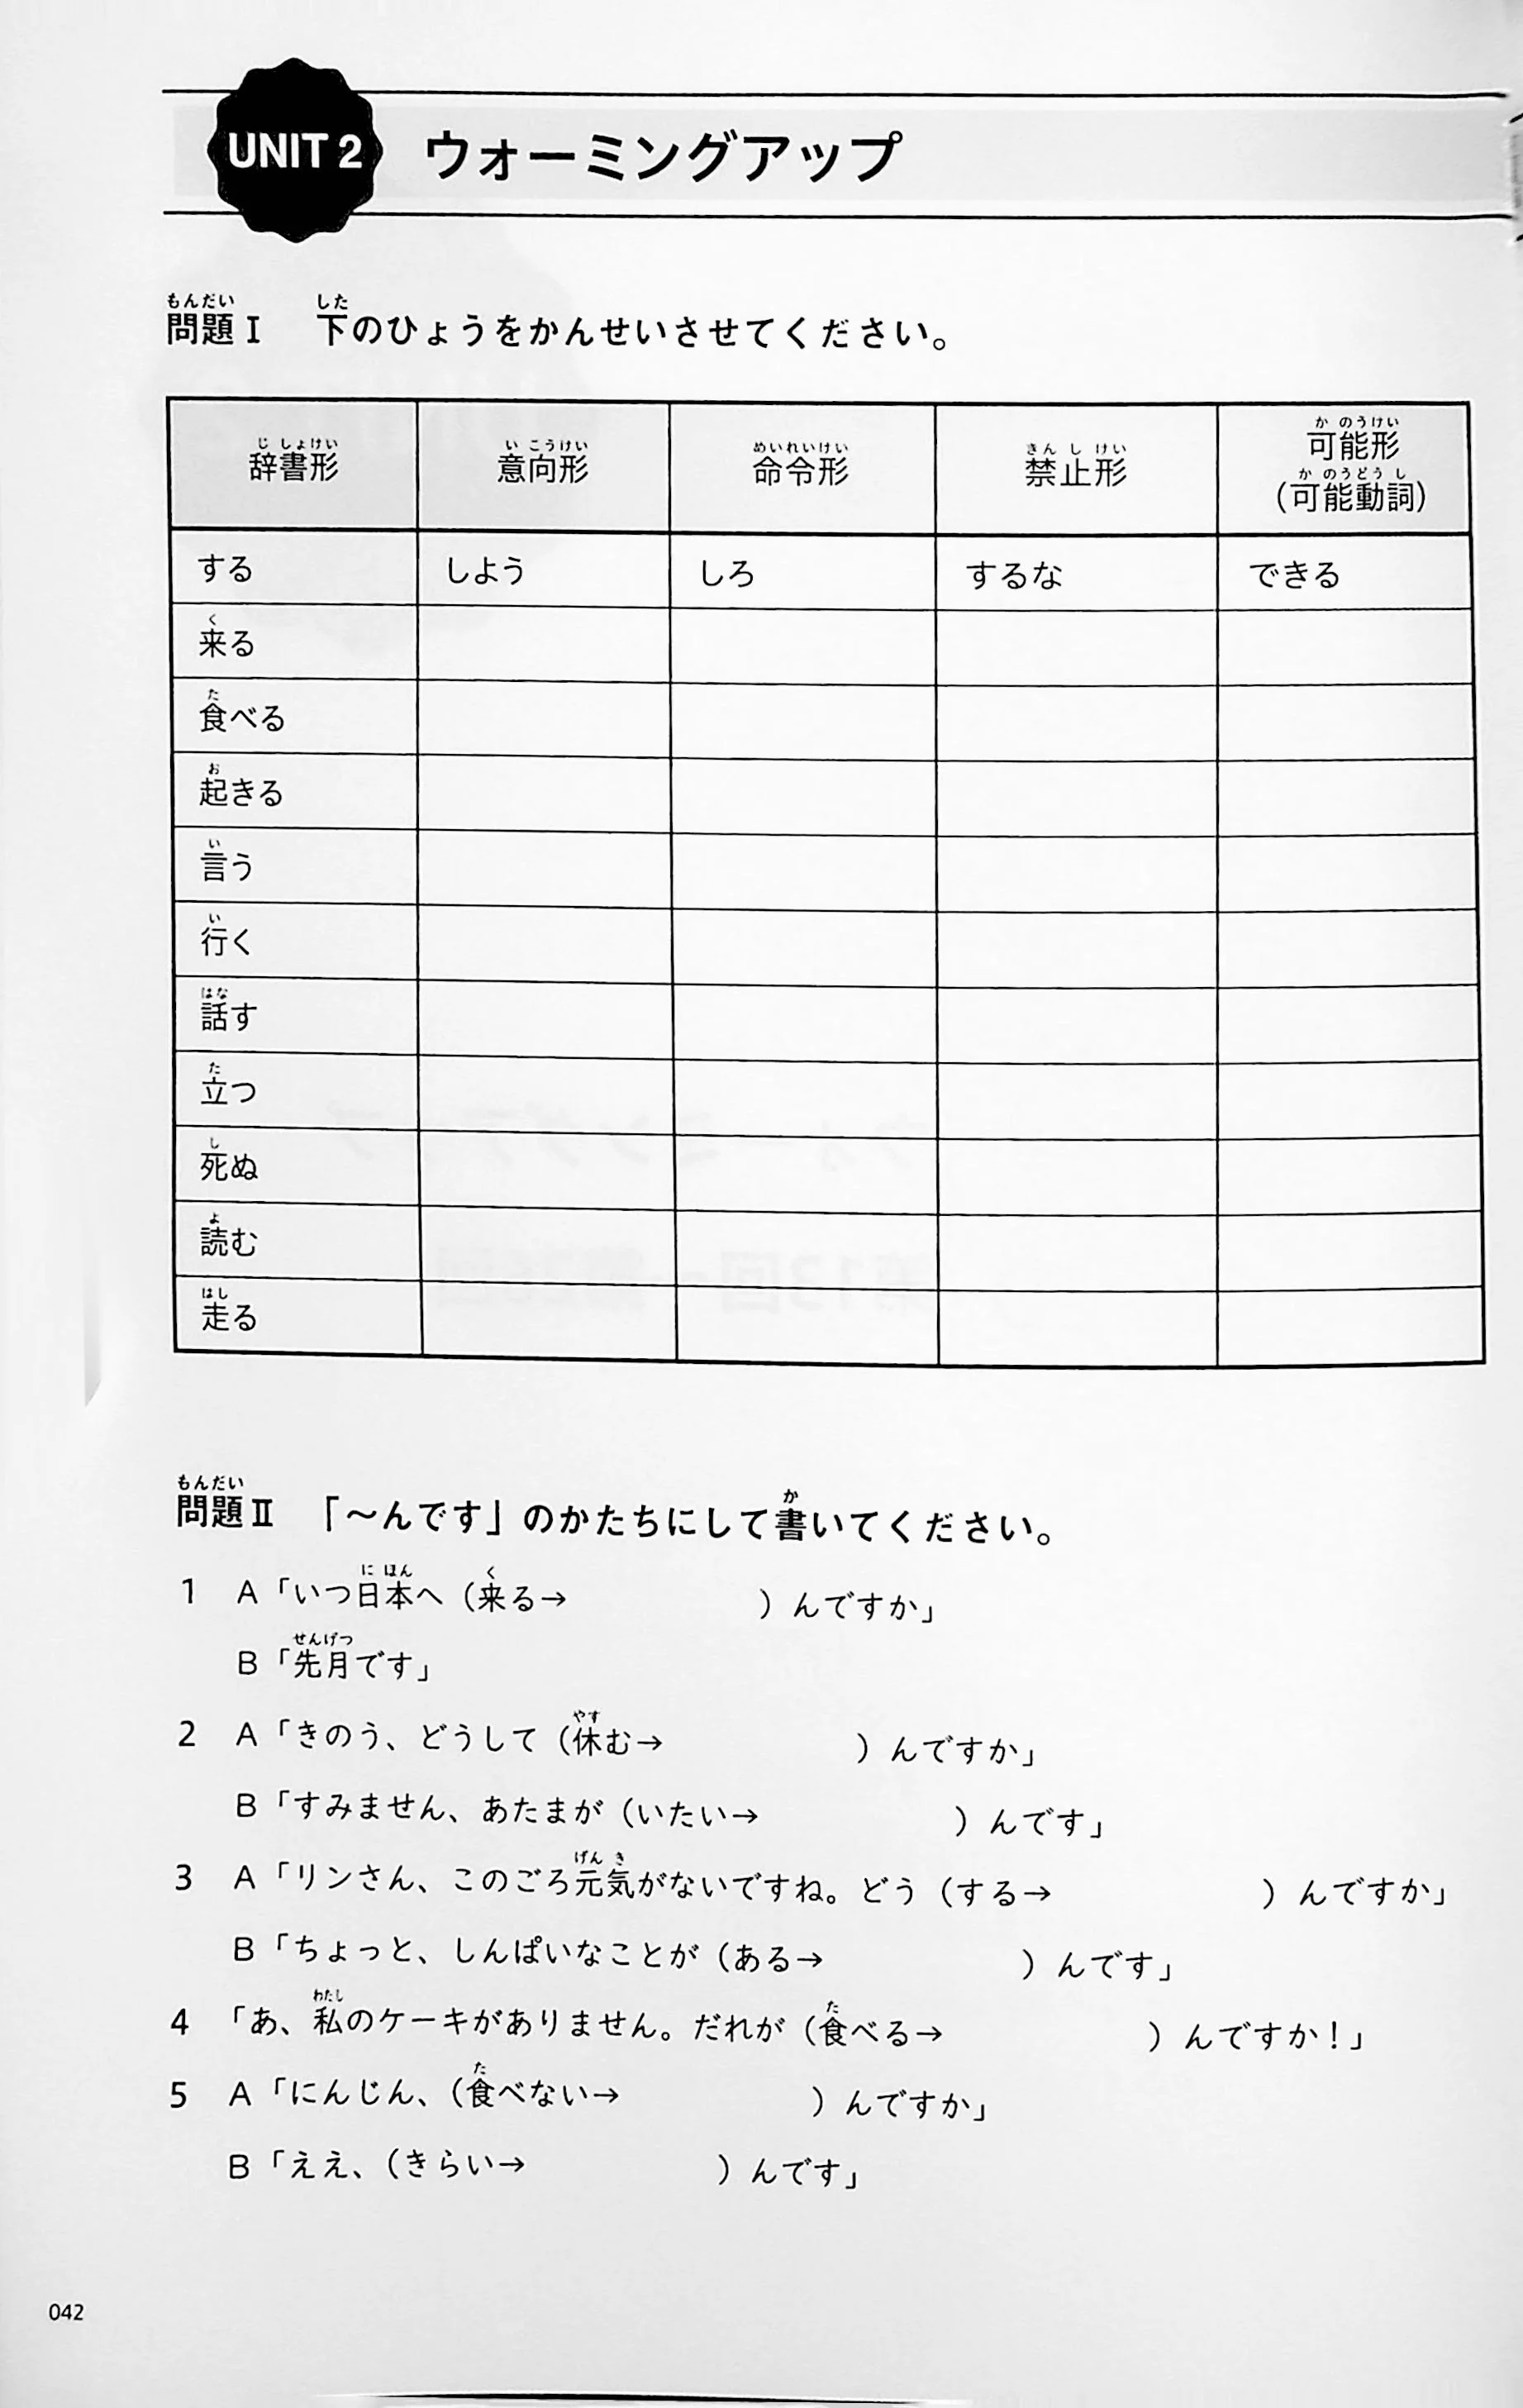 UNIT 2 ウォーミングアップ
問題Ⅰ 下のひょうをかんせいさせてください。
辞書形 意向形 命令形 禁止形 可能形(可能動詞)
する しよう しろ するな できる
来る
食べる
起きる
言う
行く
話す
立つ
死ぬ
読む
走る
問題Ⅱ 「〜んです」のかたちにして書いてください。
1 A「いつ日本へ(来る→ )んですか」
B「先月です」
2 A「きのう、どうして(休む→ )んですか」
B「すみません、あたまが(いたい→ )んです」
3 A「リンさん、このごろ元気がないですね。どう(する→ )んですか」
B「ちょっと、しんぱいなことが(ある→ )んです」
4 「あ、私のケーキがありません。だれが(食べる→ )んですか！」
5 A「にんじん、(食べない→ )んですか」
B「ええ、(きらい→ )んです」
042